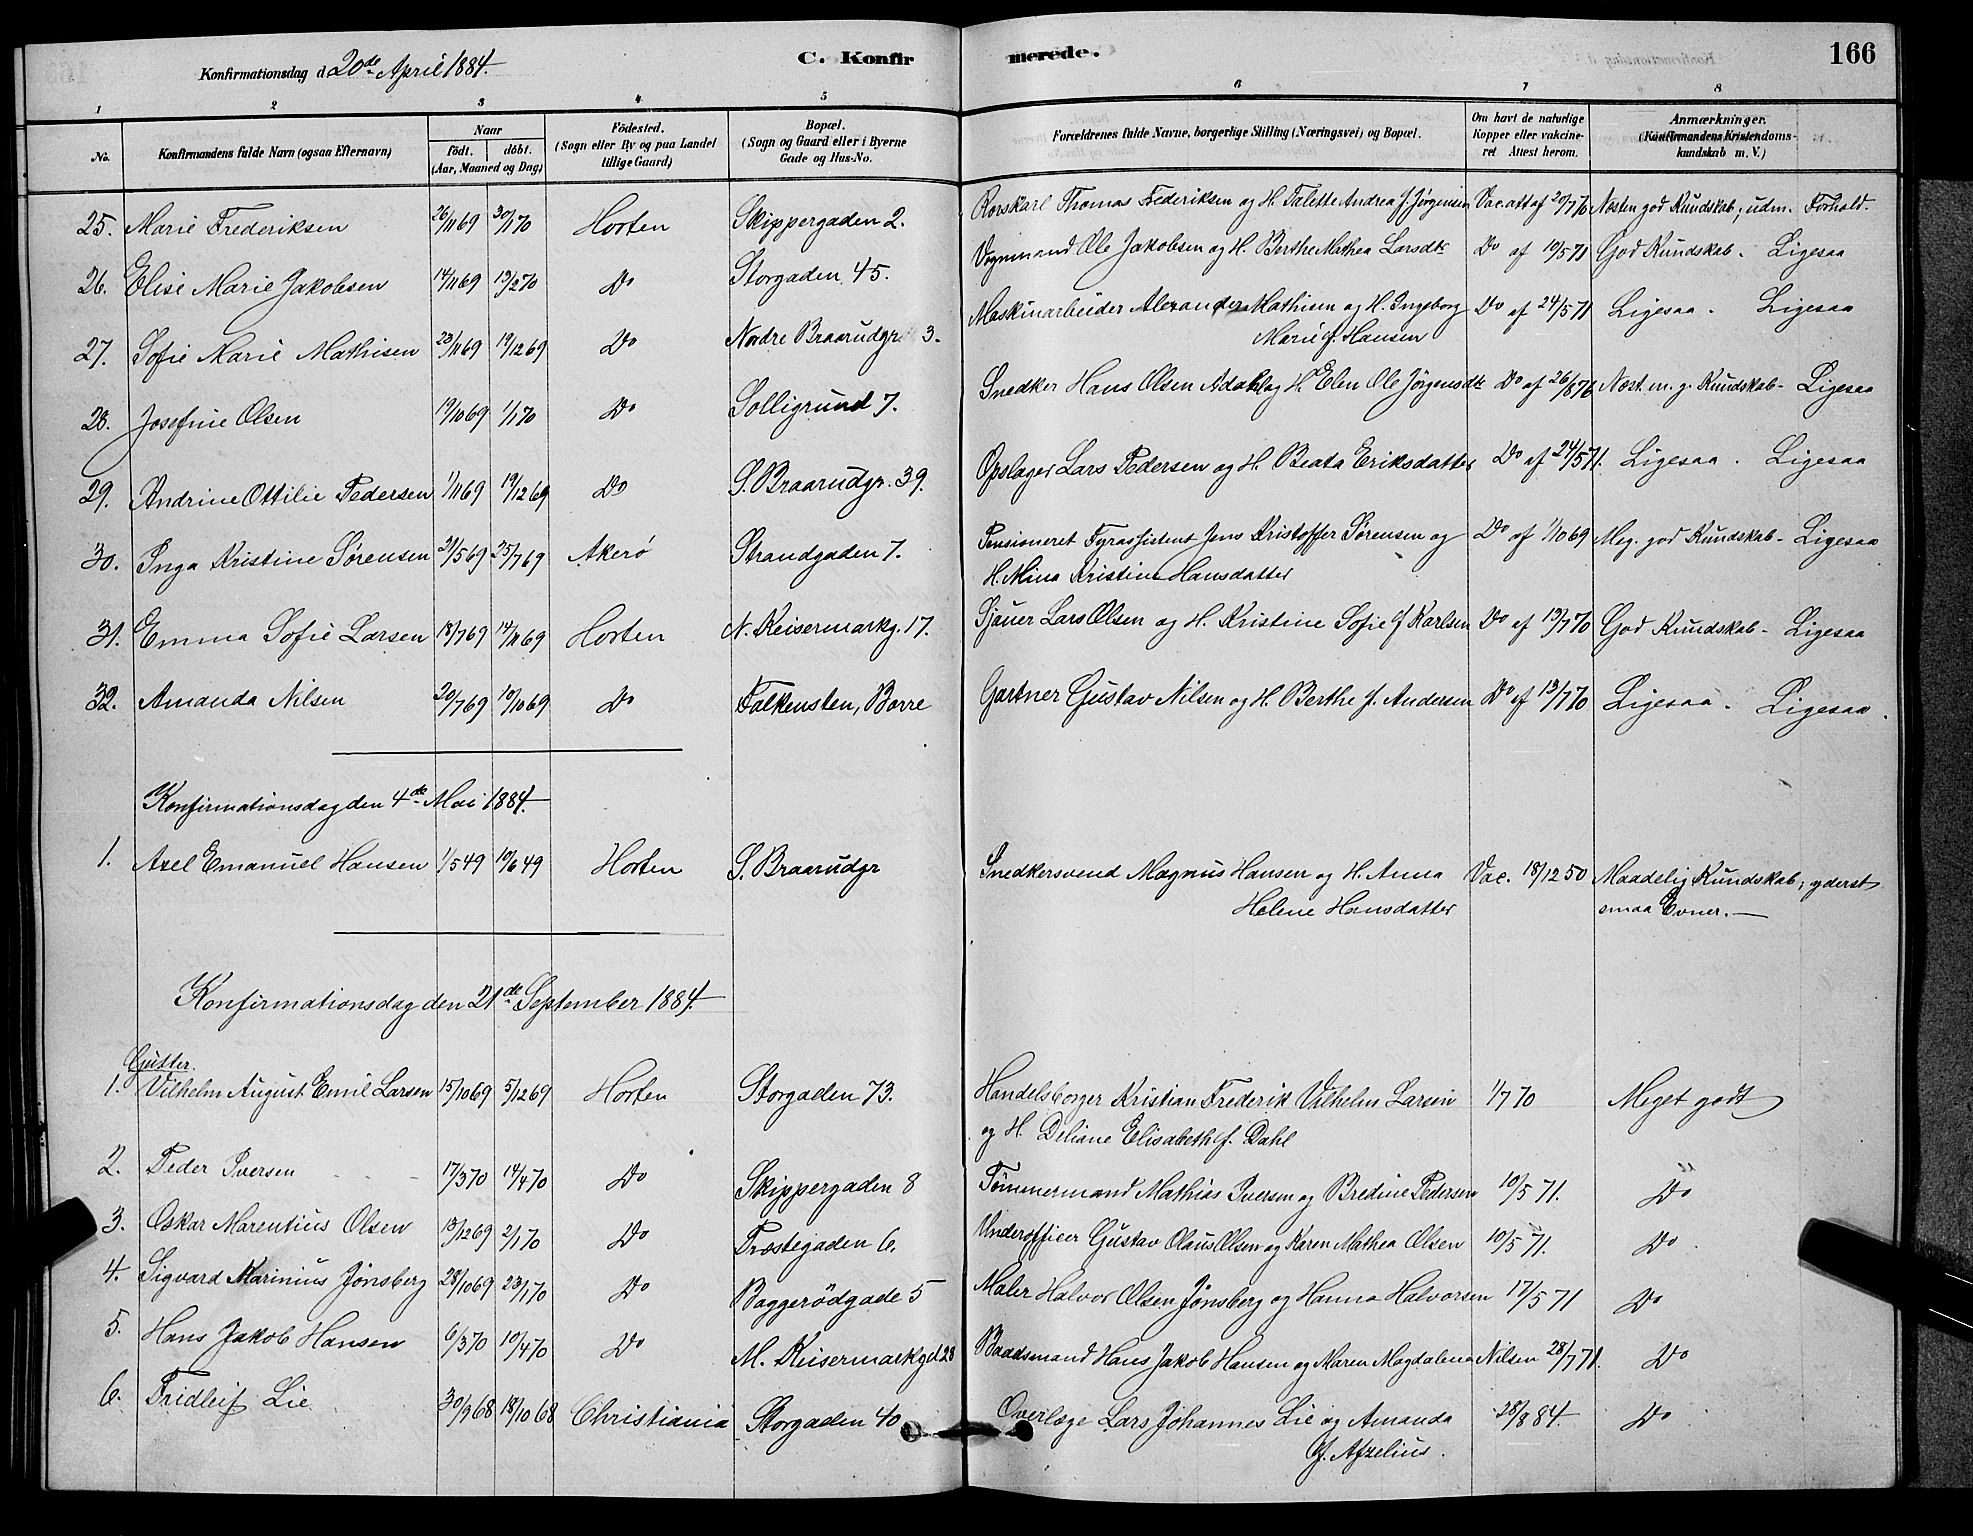 Konfirmationsdag d. 20de April 1884.
C. Konfirmerede.
166
1 2 3 4 5 6 7 8
No.
Konfirmandens fulde Navn (ogsaa Efternavn)
Naar
födt. döbt.
(Aar, Maaned og Dag)
Födested.
(Sogn eller By og paa Landet tillige Gaard)
Bopæl.
(Sogn og Gaard eller i Byerne Gade og Hus-No.
Forældrenes fulde Navne, borgerlige Stilling (Næringsvei) og Bopæl.
Om havt de naturlige Kopper eller vakcineret Attest herom.
Anmærkninger.
(Konfirmandens Kristendomskundskab m. V.)
25. Marie Frederiksen 26/11 69 30/1 70 Horten Skippergaden 2. Rorskarl Thomas Frederiksen og H. Talette Andrea f. Jørgensen Vac. att af 20/7 76 Næsten god Kundskab; udm. Forhold.
26. Elise Marie Jakobsen 14/11 69 13/2 70 Do Storgaden 45. Vognmand Ole Jakobsen og H. Berthe Mathea Larsdtr Do af 10/5 71 God Kundskab. Ligesaa
27. Sofie Marie Mathisen 23/11 69 19/12 69 Do Nordre Braarudgr 3. Maskinarbeider Alexander Mathisen og H. Ingeborg Marie f. Hansen Do af 24/5 71 Ligesaa. Ligesaa
28. Josefine Olsen 19/10 69 1/1 70 Do Solligrund 7. Snedker Hans Olsen Adahl og H. Elen Ole Jörgensdtr Do af 26/8 76 Næst. m. g. Kundskab - Ligesaa
29. Andrine Ottilie Pedersen 1/11 69 19/12 69 Do S. Braarudgr. 39. Opslager Lars Pedersen og H. Beata Eriksdatter Do af 24/5 71. Ligesaa. Ligesaa
30. Inga Kristine Sørensen 21/5 69 25/7 69 Akerö Strandgaden 7. Pensioneret Fyrassistent Jens Kristoffer Sørensen og H. Mina Kristine Hansdatter Do af 1/10 69 Meg. god Kundskab - Ligesaa
31. Emma Sofie Larsen 18/7 69 14/11 69 Horten N. Keisermarkg. 17. Sjauer Lars Olsen og H. Kristine Sofie f Karlsen Do af 13/7 70 God Kundskab - Ligesaa
32. Amanda Nilsen 20/7 69 10/10 69 Do Falkensten, Borre Gartner Gustav Nilsen og H. Berthe f. Andersen Do af 13/7 70 Ligesaa. Ligesaa.
Konfirmationsdag den 4de Mai 1884.
1. Axel Emanuel Hansen 1/5 49 10/6 49 Horten S. Braarudgr Snedkersvend Magnus Hansen og H. Anna Helene Hansdatter Vac. 18/12 50 Maadelig Kundskab; yderst smaa Evner. —
Konfirmationsdag den 21de September 1884.
Gutter.
1. Vilhelm August Emil Larsen 15/10 69 5/12 69 Horten Storgaden 73. Handelsborger Kristian Frederik Vilhelm Larsen og H. Deliane Elisabeth f. Dahl 1/7 70 Meget godt
2. Peder Iversen 17/3 70 14/4 70 Do Skippergaden 8 Tömmermand Mathias Iversen og Bredine Pedersen 10/5 71. Do
3. Oskar Marentius Olsen 13/12 69 2/1 70 Do Præstegaden 6. Underofficer Gustav Olaus Olsen og Karen Mathea Olsen 10/5 71. Do
4. Sigvard Marinius Jönsberg 28/10 69 23/1 70 Do Baggerödgade 5 Maler Halvor Olsen Jönsberg og Hanna Halvorsen 17/5 71 Do
5. Hans Jakob Hansen 6/3 70 10/4 70 Do M. Keisermarkgd 23 Baadsmand Hans Jakob Hansen og Maren Magdalena Nilsen 28/7 71. Do
6. Fridleif Lie 30/9 68 18/10 68 Christiania Storgaden 40 Overlæge Lars Johannes Lie og Amanda f. Afzelius. 28/8 84. Do